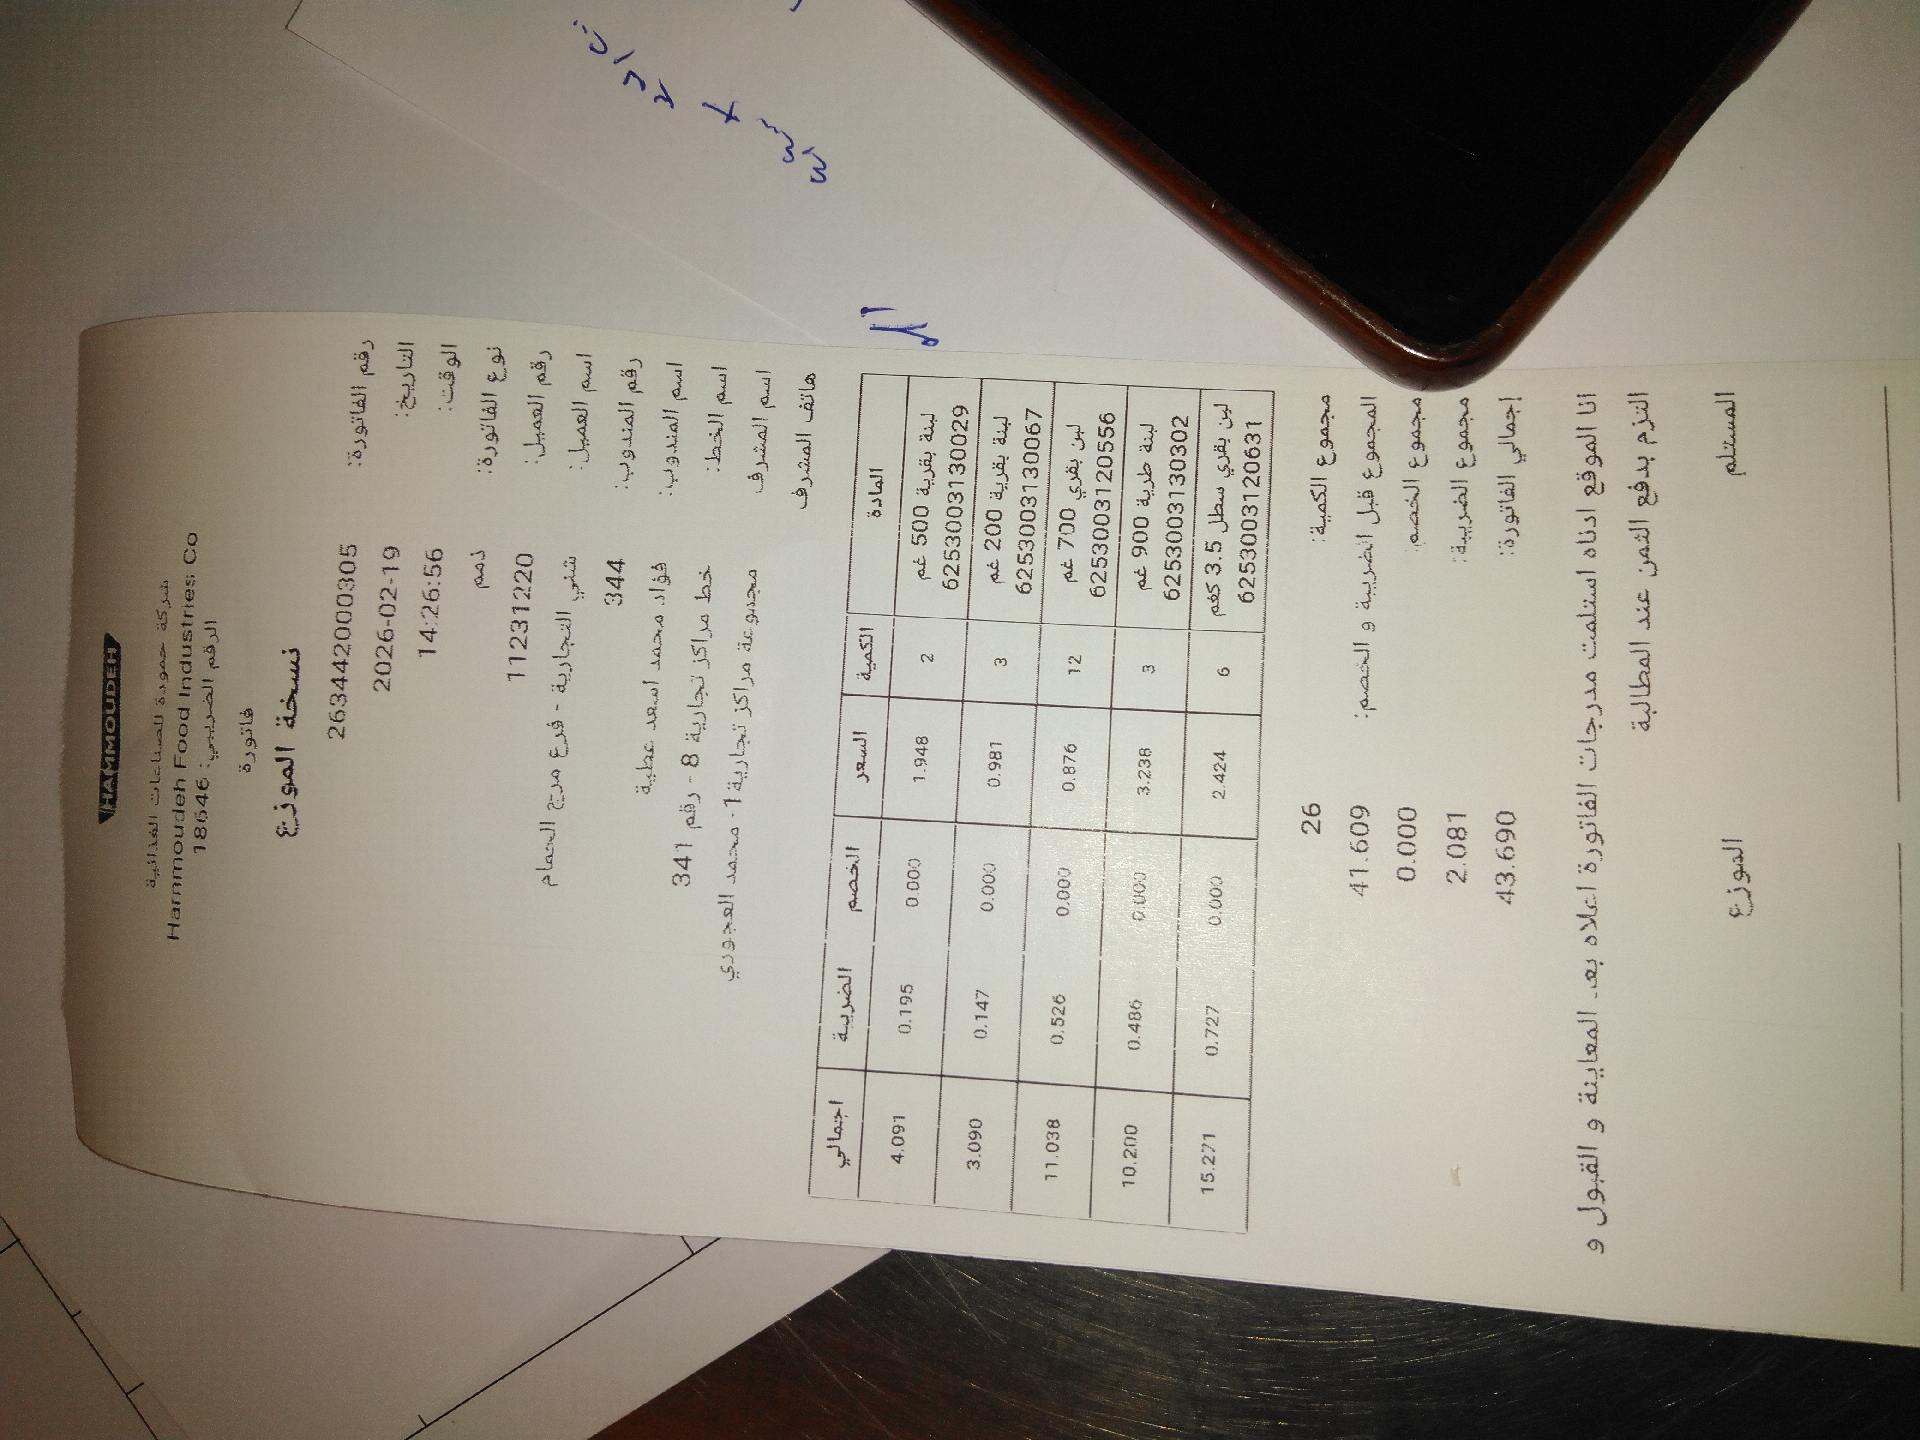 HAMMOUDEH
شركة حمودة للصناعات الغذائية
Hammoudeh Food Industries Co
الرقم الضريبي: 18646
فاتورة
نسخة الموزع
رقم الفاتورة: 26344200305
التاريخ: 2026-02-19
الوقت: 14:26:56
نوع الفاتورة: ذمم
رقم العميل: 11231220
اسم العميل: شني التجارية - فرع مرج الحمام
رقم المندوب: 344
اسم المندوب: فؤاد محمد اسعد عطية
اسم الخط: خط مراكز تجارية 8 - رقم 341
اسم المشرف مجموعة مراكز تجارية 1- محمد العجوري
هاتف المشرف
المادة الكمية السعر الخصم الضريبة اجمالي
لبنة بقرية 500 غم 2 1.948 0.000 0.195 4.091
6253003130029
لبنة بقرية 200 غم 3 0.981 0.000 0.147 3.090
6253003130067
لبن بقري 700 غم 12 0.876 0.000 0.526 11.038
6253003120556
لبنة طرية 900 غم 3 3.238 0.000 0.486 10.200
6253003130302
لبن بقري سطل 3.5 كغم 6 2.424 0.000 0.727 15.271
6253003120631
مجموع الكمية: 26
المجموع قبل الضريبة و الخصم: 41.609
مجموع الخصم: 0.000
مجموع الضريبة: 2.081
إجمالي الفاتورة: 43.690
انا الموقع ادناه استلمت مدرجات الفاتورة اعلاه بعد المعاينة و القبول و
التزم بدفع الثمن عند المطالبة
المستلم الموزع